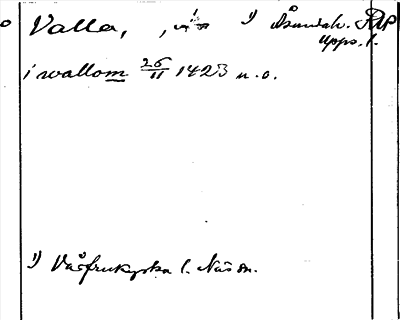 Valla, 1) Åsunda h. RAP
Upps. l.
i wallom 26/11 1423 n. o.
1) Vårfrukyrka l. Näs sn.